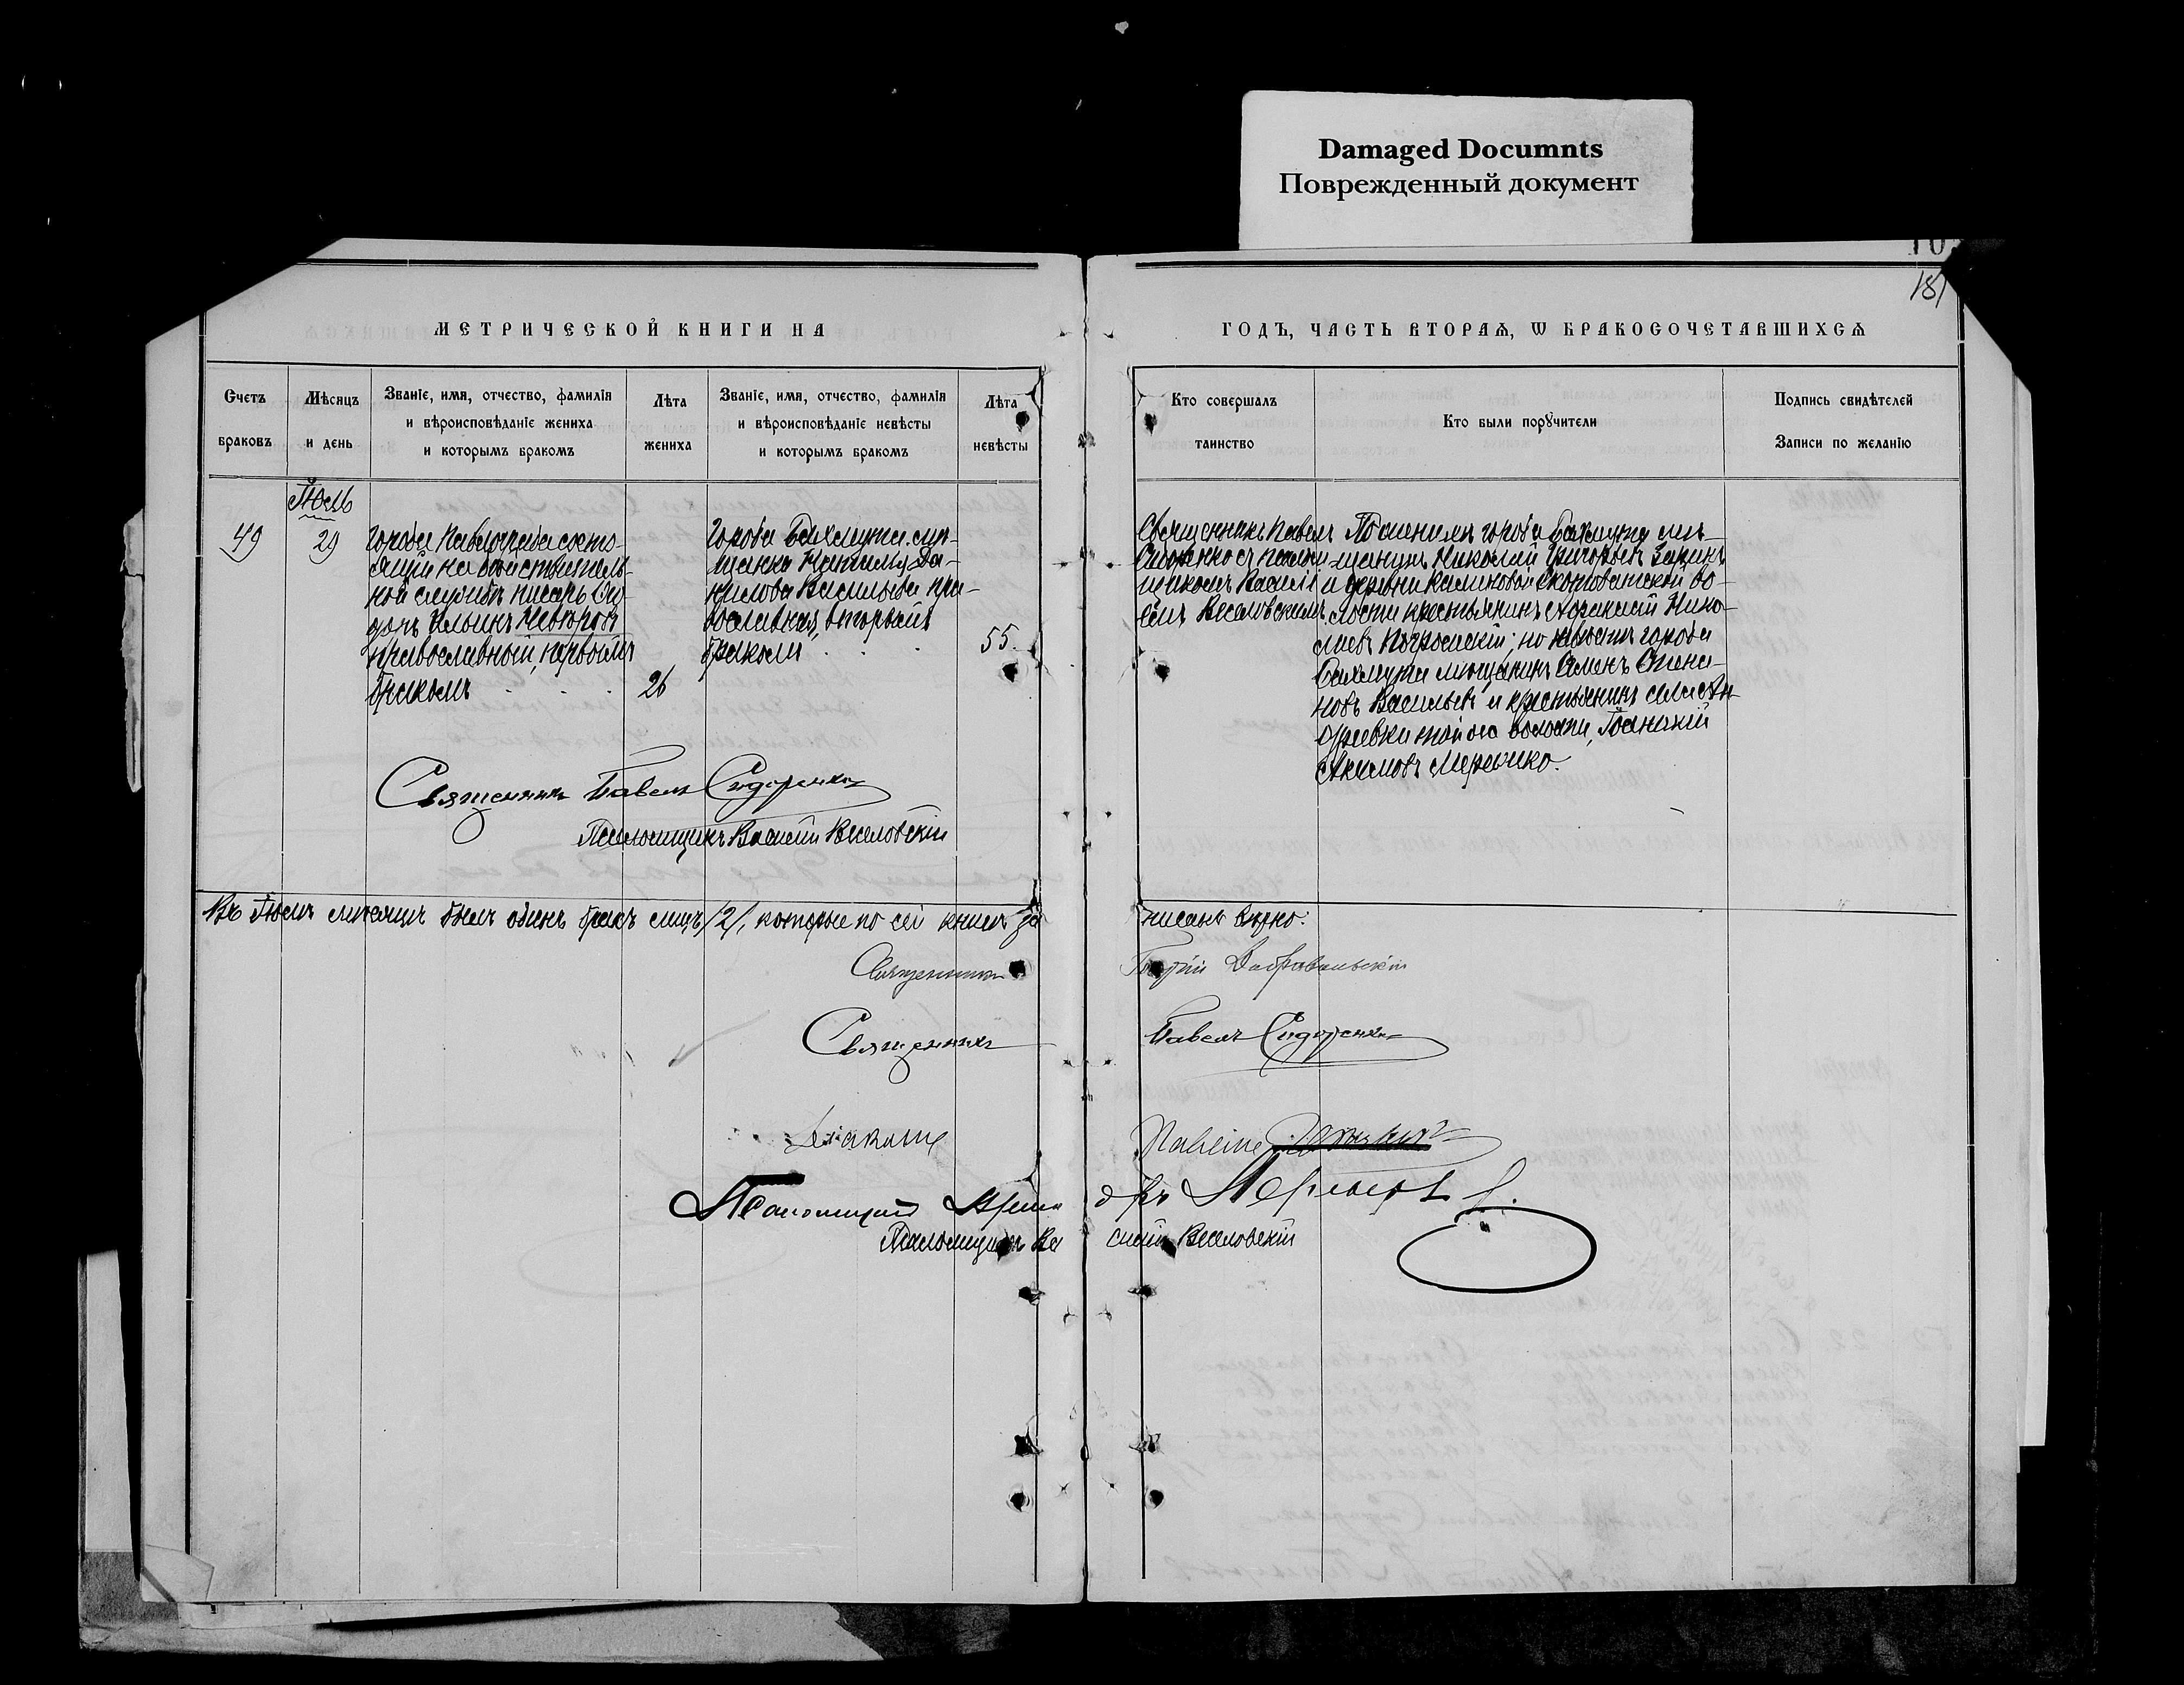 Damaged Documnts
Поврежденный документ
181
МЕТРИЧЕСКОЙ КНИГИ НА
ГОДЪ, ЧАСТЬ ВТОРАѦ, Ѡ БРАКОСОЧЕТАВШИХСѦ
Счетъ браковъ
Мѣсяцъ и день
Званіе, имя, отчество, фамилія
и вѣроисповѣданіе жениха
и которымъ бракомъ
Лѣта жениха
Званіе, имя, отчество, фамилія
и вѣроисповѣданіе невѣсты
и которымъ бракомъ
Лѣта невѣсты
Кто совершалъ таинство
Кто были порꙋчители
Подпись свидѣтелей
Записи по желанію
Іюль
49
29
Города Павлограда состо-
ящій на дѣйствитель-
ной службѣ писарь
Ильинъ
православный, первымъ
бракомъ
26
Города Бахмута мѣ-
щанка Да-
нилова Васильева пра-
вославная, вторымъ
бракомъ
55.
Священникъ Павелъ
Сидоренко съ псалом-
щикомъ Василі-
емъ Веселовскимъ
По женихѣ города Бахмута мѣ-
щанинъ Николай Григорьевъ
и деревни Калиновой Скотоватской во-
лости крестьянинъ Афанасій Нико-
лаевъ по невѣстѣ города
Бахмута мѣщанинъ
Васильевъ и крестьянинъ села Ан-
дреевки той же волости,
Акимовъ
Священникъ Павелъ Сидоренко
Псаломщикъ Василій Веселовскій
Въ Іюлѣ мѣсяцѣ былъ одинъ бракъ лицъ /2/, которые по сей книгѣ за
писанъ вѣрно:
Священникъ
Георгій Добровольскій
Священникъ
Павелъ Сидоренко
Діаконъ
Псаломщикъ
Псаломщикъ Ва
силій Веселовскій